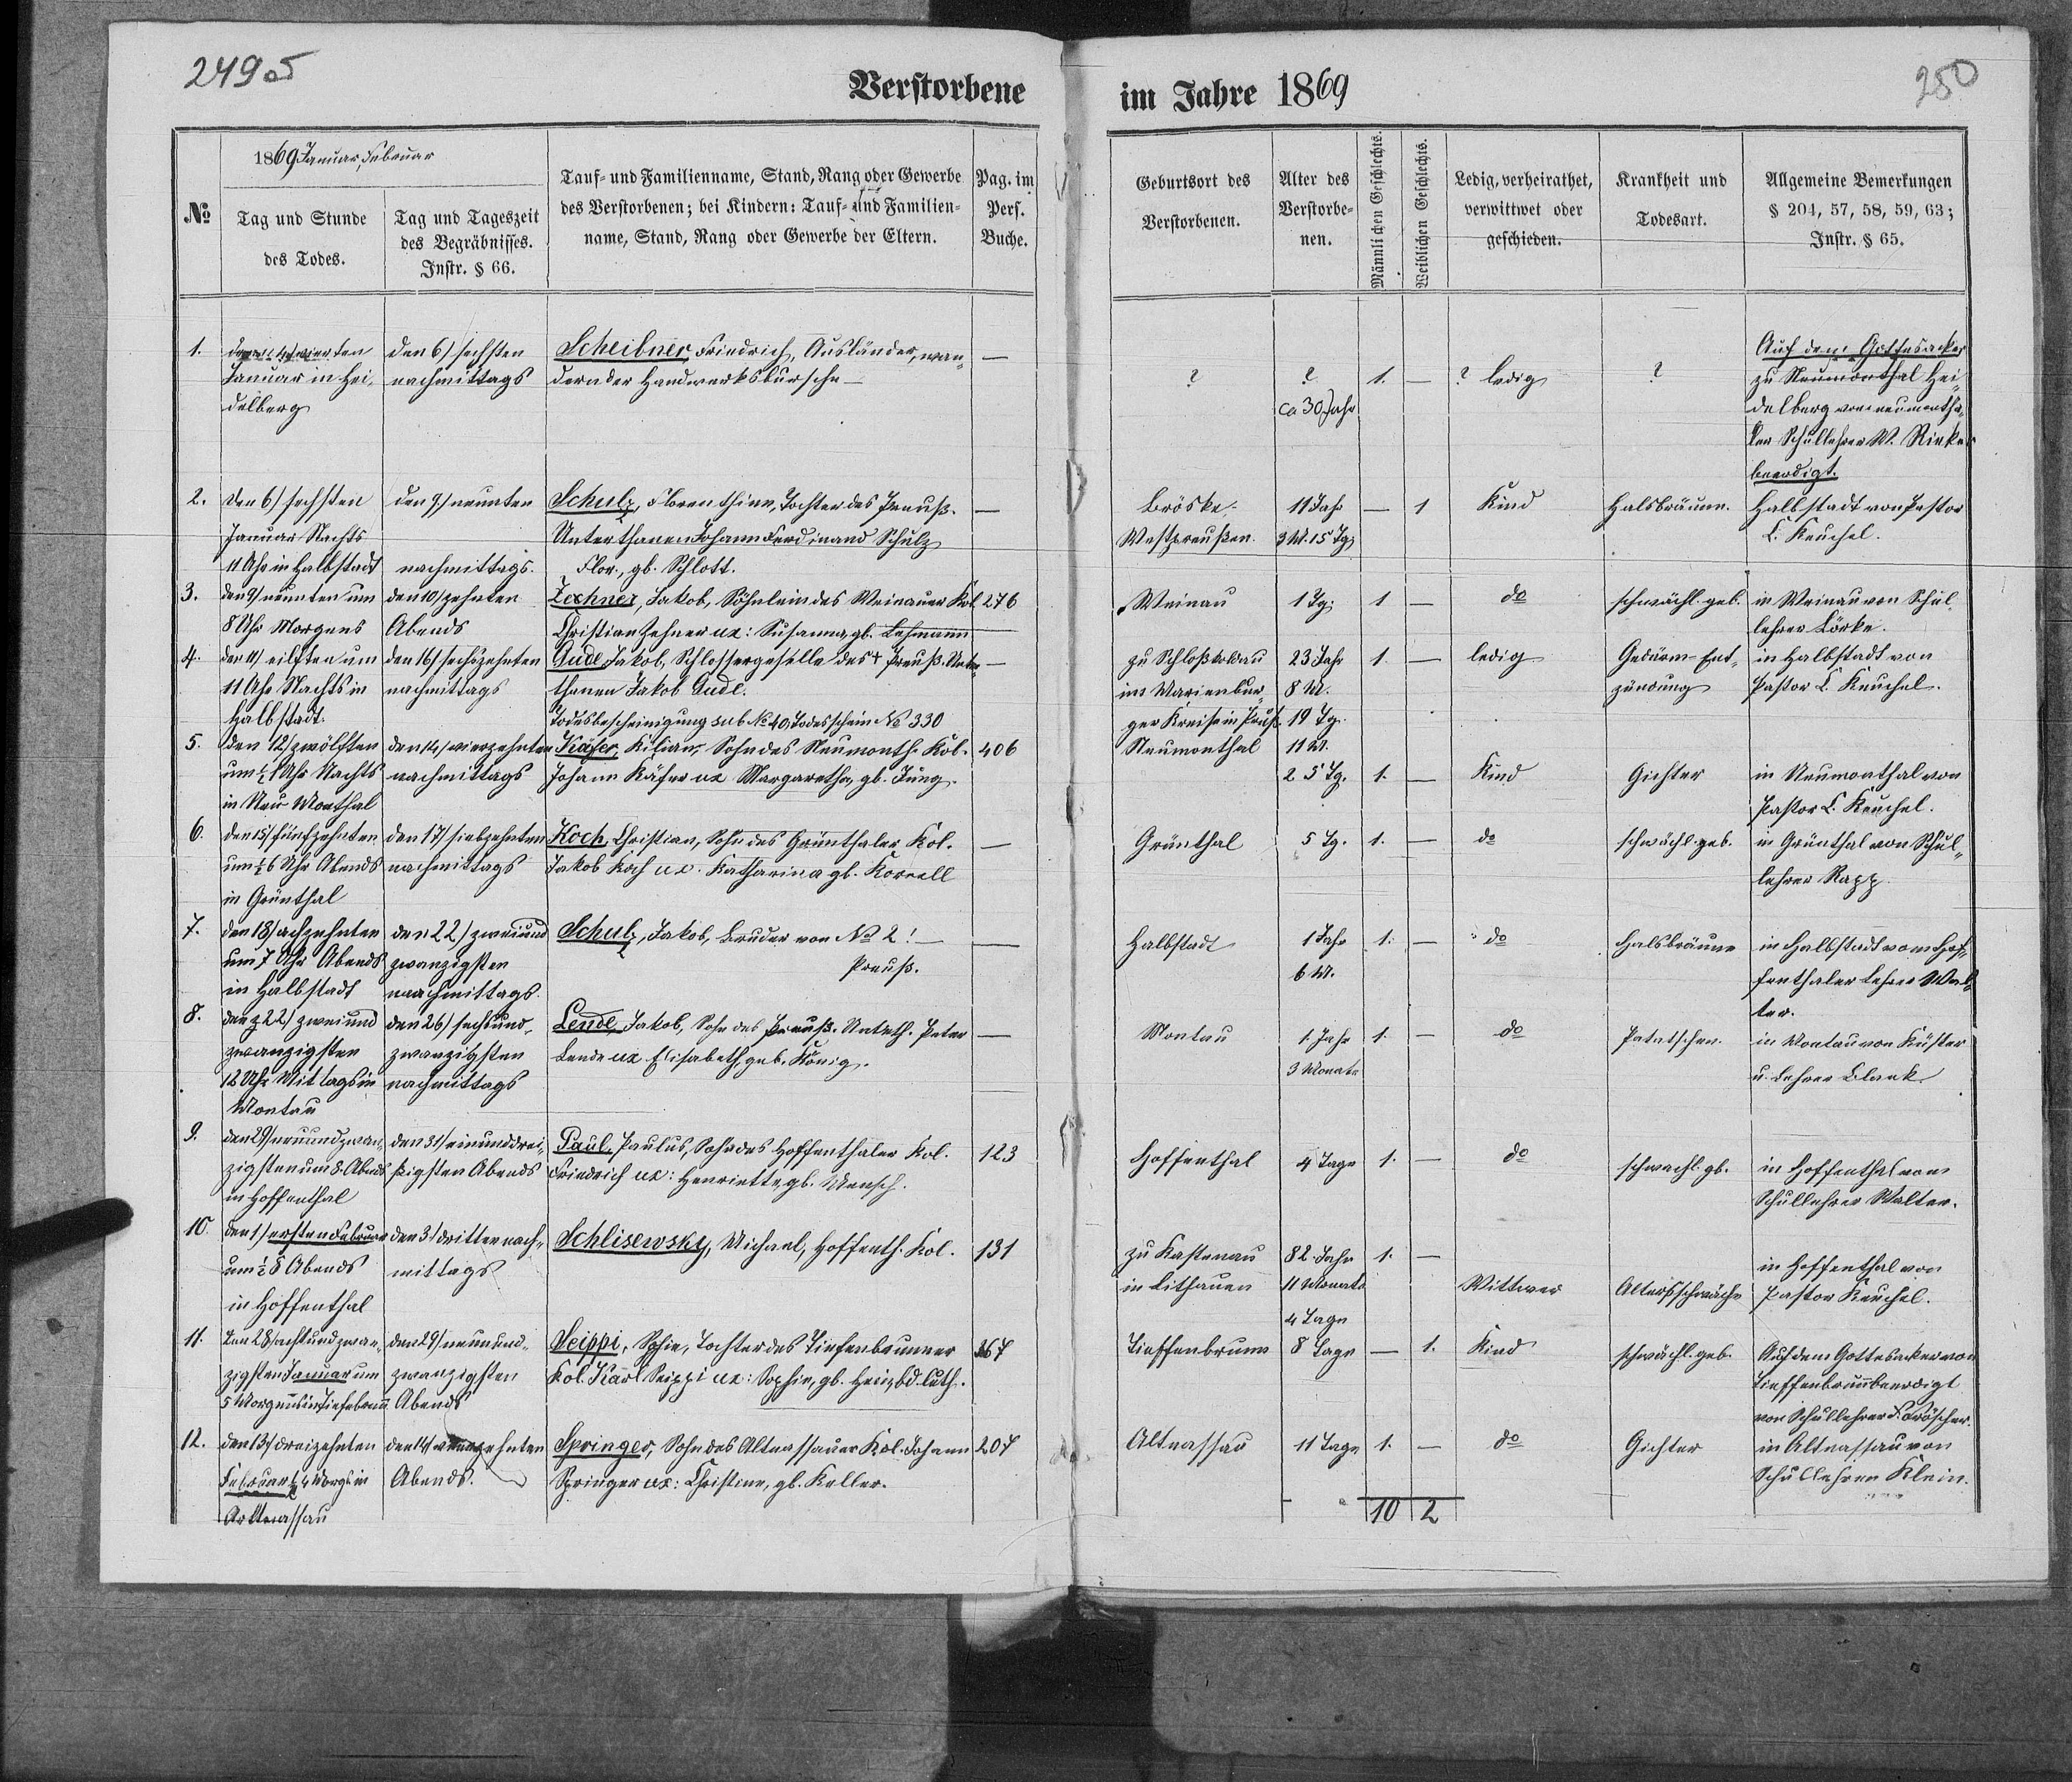 249 os
250
Verstorbene im Jahre 1869
1869 Januar, Februar
№
Tag und Stunde
des Todes.
Tag und Tageszeit
des Begräbnisses.
Instr. § 66.
Tauf- und Familienname, Stand, Rang oder Gewerbe
des Verstorbenen; bei Kindern: Tauf- und Familien-
name, Stand, Rang oder Gewerbe der Eltern.
Pag. im
Pers.
Buche.
Geburtsort des
Verstorbenen.
Alter des
Verstorbe-
nen.
Männlichen Geschlechts.
Weiblichen Geschlechts.
Ledig, verheirathet,
verwittwet oder
geschieden.
Krankheit und
Todesart.
Allgemeine Bemerkungen
§ 204, 57, 58, 59, 63;
Instr. § 65.
1.
den 4/ vierten
Januar in Hei-
delberg
den 6/ sechsten
nachmittags
Scheibner, Friedrich, Ausländer, wan-
dernder Handwerksbursche —
—
?
?
ca 30 Jahr
1.
—
? ledig
?
Auf dem Gottesacker
zu Neumonthal Hei-
delberg vom neumontha-
ler Schullehrer W. Rinker
beerdigt.
2.
den 6/ sechsten
Januar Nachts
11 Uhr in Halbstadt
den 9/ neunten
nachmittags.
Schulz, Florenthine, Tochter des Preuß.
Unterthanen Johann Ferdinand Schulz
Flor., gb. Schlott.
—
Bröske
Westpreußen.
11 Jahr
3 M. 15 Tg.
—
1
Kind
Halsbräune.
Halbstadt von Pastor
C. Keuchel.
3.
den 9/ neunten um
8 Uhr Morgens
den 10/ zehnten
Abends
Zechner, Jakob, Söhnlein des Weinauer Kol.
Christian Zehner ux: Susanna, gb. Lehmann
276
Weinau
1 Tg.
1
—
do
schwächl. geb.
in Weinau von Schul
lehrer Lörke.
4.
den 11/ eilften um
11 Uhr Nachts in
Halbstadt.
den 16/ sechszehnten
nachmittags
Gudl, Jakob, Schlossergeselle des + Preuß. Unter-
thanen Jakob Gudl.
Todesbescheinigung sub № 40, Todesschein № 330
—
zu Schloß
im Marienbur-
ger Kreise in Preuß.
23 Jahr
8 M.
19 Tg.
1.
—
ledig
Gedärm-Ent-
zündung
in Halbstadt von
Pastor C. Keuchel.
5.
den 12/ zwölften
um ½ 1 Uhr Nachts
in Neu Monthal
den 14/ vierzehnten
nachmittags
Käfer, Kilian, Sohn des Neumonth. Kol.
Johann Käfer ux Margaretha, gb. Jung.
406
Neumonthal
11 M.
25 Tg.
1.
—
Kind
Gichter
in Neumonthal von
Pastor C. Keuchel.
6.
den 15/ fünfzehnten
um ½ 6 Uhr Abends
in Grünthal
den 17/ siebzehnten
nachmittags
Koch, Christian, Sohn des Grünthaler Kol.
Jakob Koch ux. Katharina gb. Kornell
—
Grünthal
5 Tg.
1.
—
do
schwächl. geb.
in Grünthal von Schul-
lehrer Rapp.
7.
den 18/ achzehnten
um 7 Uhr Abends
in Halbstadt
den 22/ zweiund
zwanzigsten
nachmittags.
Schulz, Jakob, Bruder von № 2! —
Preuß.
—
Halbstadt
1 Jahr
6 M.
1.
—
do
Halsbräune
in Halbstadt vom Hof-
fenthaler Lehrer Wal-
ter.
8.
den 22/ zweiund
zwanzigsten
12 Uhr Mittags in
Montau
den 26/ sechsund-
zwanzigsten
nachmittags
Lende, Jakob, Sohn des Preuß. Unterth. Peter
Lende ux Elisabeth, geb. König.
—
Montau
1 Jahr
3 Monate
1.
—
do
in Montau von Küster
u. Lehrer Blank.
9.
den 29/ neunundzwan-
zigsten um 8. Abends
in Hoffenthal
den 31/ einunddrei-
ßigsten Abends
Paul, Paulus, Sohn des Hoffenthaler Kol.
Friedrich ux: Henriette, gb. Mensch.
123
Hoffenthal
4 Tage
1.
—
do
schwächl. gb.
in Hoffenthal vom
Schullehrer Walter.
10.
den 1/ ersten Februar
um ½ 8 Abends
in Hoffenthal
den 3/ dritten nach-
mittags
Schlisewsky, Michael, Hoffenth. Kol.
131
zu Kastenau
in Lithauen
82. Jahr
11 Monate
4 Tage
1.
—
Wittwer
Altersschwäche
in Hoffenthal von
Pastor Keuchel.
11.
den 28/ achtundzwan-
zigsten Januar um
5 Morgens in Tiefenbrunn
den 29/ neunund-
zwanzigsten
Abends
Seippi, Sophie, Tochter des Tiefenbrunner
Kol. Karl Seippi ux: Sophie, gb. Heinz, bd. luth.
367
Tieffenbrunn
8 Tage
—
1.
Kind
schwächl. geb.
Auf dem Gottesacker von
Tieffenbrunn beerdigt
von Schullehrer
12.
den 13/ dreizehnten
Februar ½ 4 Morg. in
Altnassau
den 14/ vierzehnten
Abends.
Springer, Sohn des Altnassauer Kol. Johann
Springer ux: Christine, gb. Keller.
207
Altnassau
11 Tage
1.
—
do
Gichter
in Altnassau von
Schullehrer Klein.
10 2